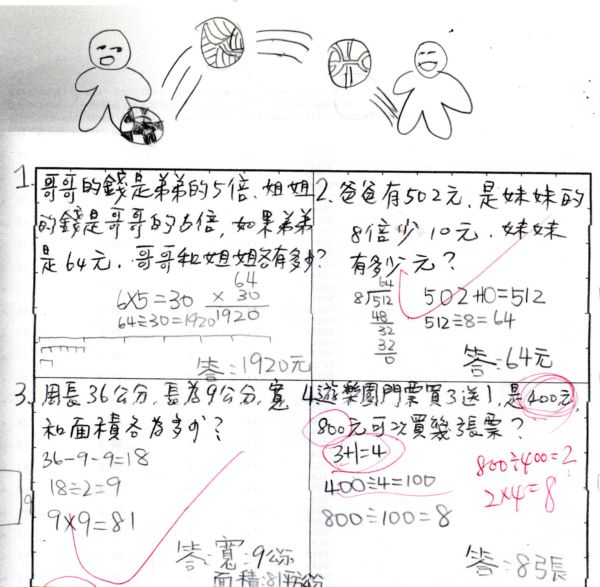 1. 哥哥的錢是弟弟的5倍,姐姐
的錢是哥哥的6倍,如果弟弟
是64元,哥哥和姐姐各有多少?
6×5=30
64
×30
1920
64÷30=1920
答:1920元
2. 爸爸有502元,是妹妹的
8倍少10元,妹妹
有多少元?
64
8 512
48
32
32
0
502+10=512
512÷8=64
答:64元
3. 周長36公分,長為9公分,寬
和面積各為多少?
36-9-9=18
18÷2=9
9×9=81
答:寬:9公分
面積:81平方公分
4. 遊樂園門票買3送1,是400元,
800元可以買幾張票?
3+1=4
400÷4=100
800÷100=8
800÷400=2
2×4=8
答:8張